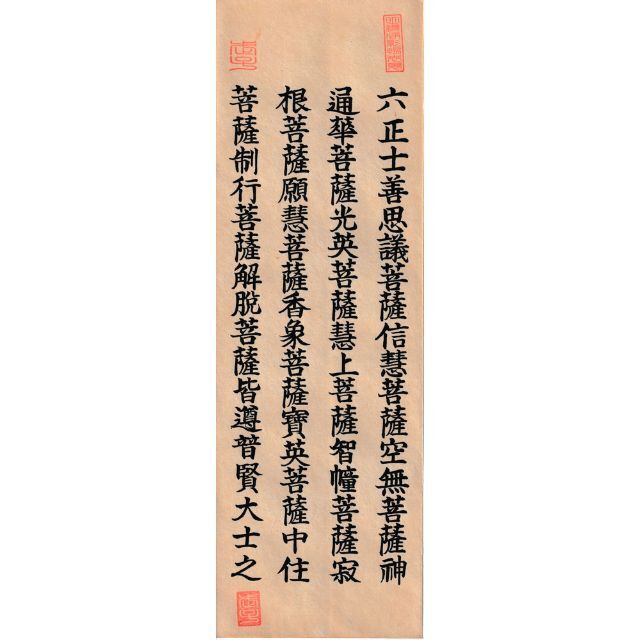 六正士善思議菩薩信慧菩薩空無菩薩神
通華菩薩光英菩薩慧上菩薩智幢菩薩寂
根菩薩願慧菩薩香象菩薩寶英菩薩中住
菩薩制行菩薩解脫菩薩皆遵普賢大士之